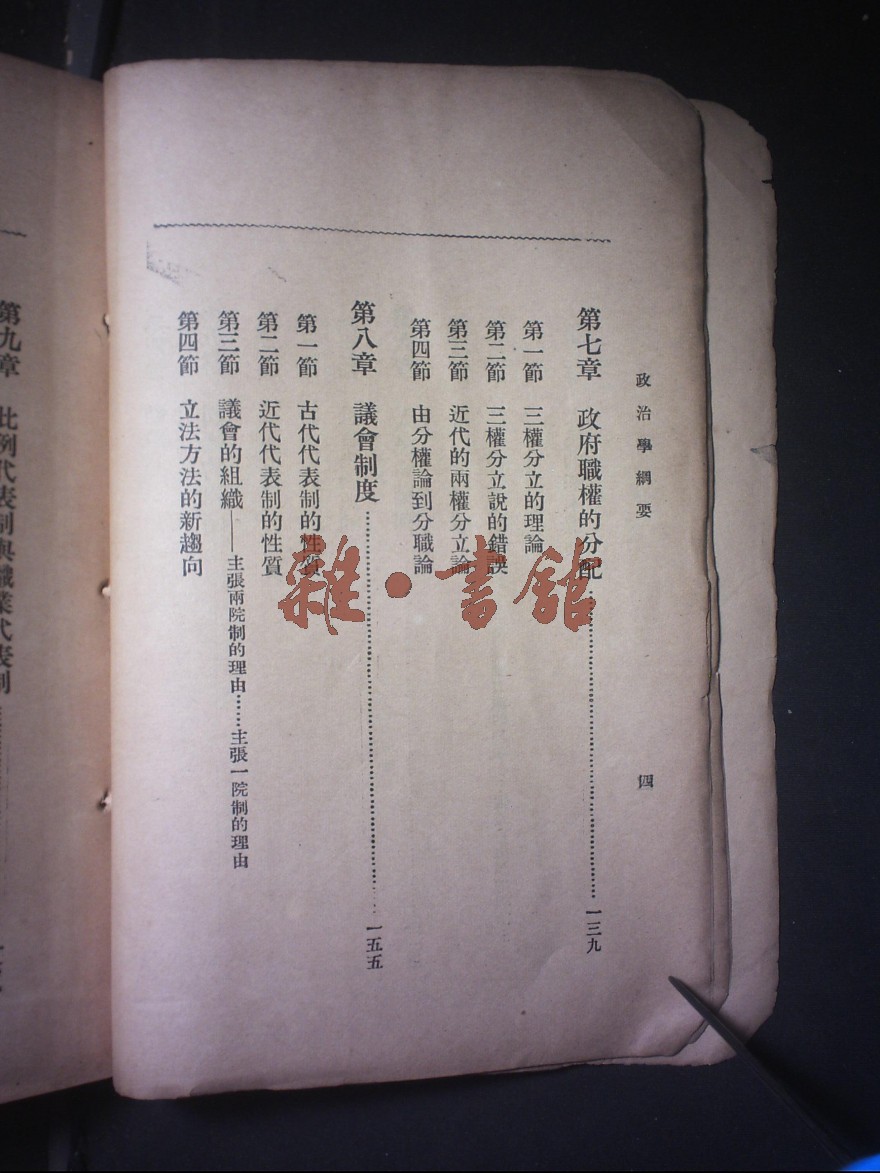 政治學綱要
四
第七章　政府職權的分配……一三九
第一節　三權分立的理論
第二節　三權分立說的錯誤
第三節　近代的兩權分立論
第四節　由分權論到分職論
第八章　議會制度……一五五
第一節　古代代表制的性質
第二節　近代代表制的性質
第三節　議會的組織——主張兩院制的理由……主張一院制的理由
第四節　立法方法的新趨向
第九章　比例代表制與職業代表制
雜·書館